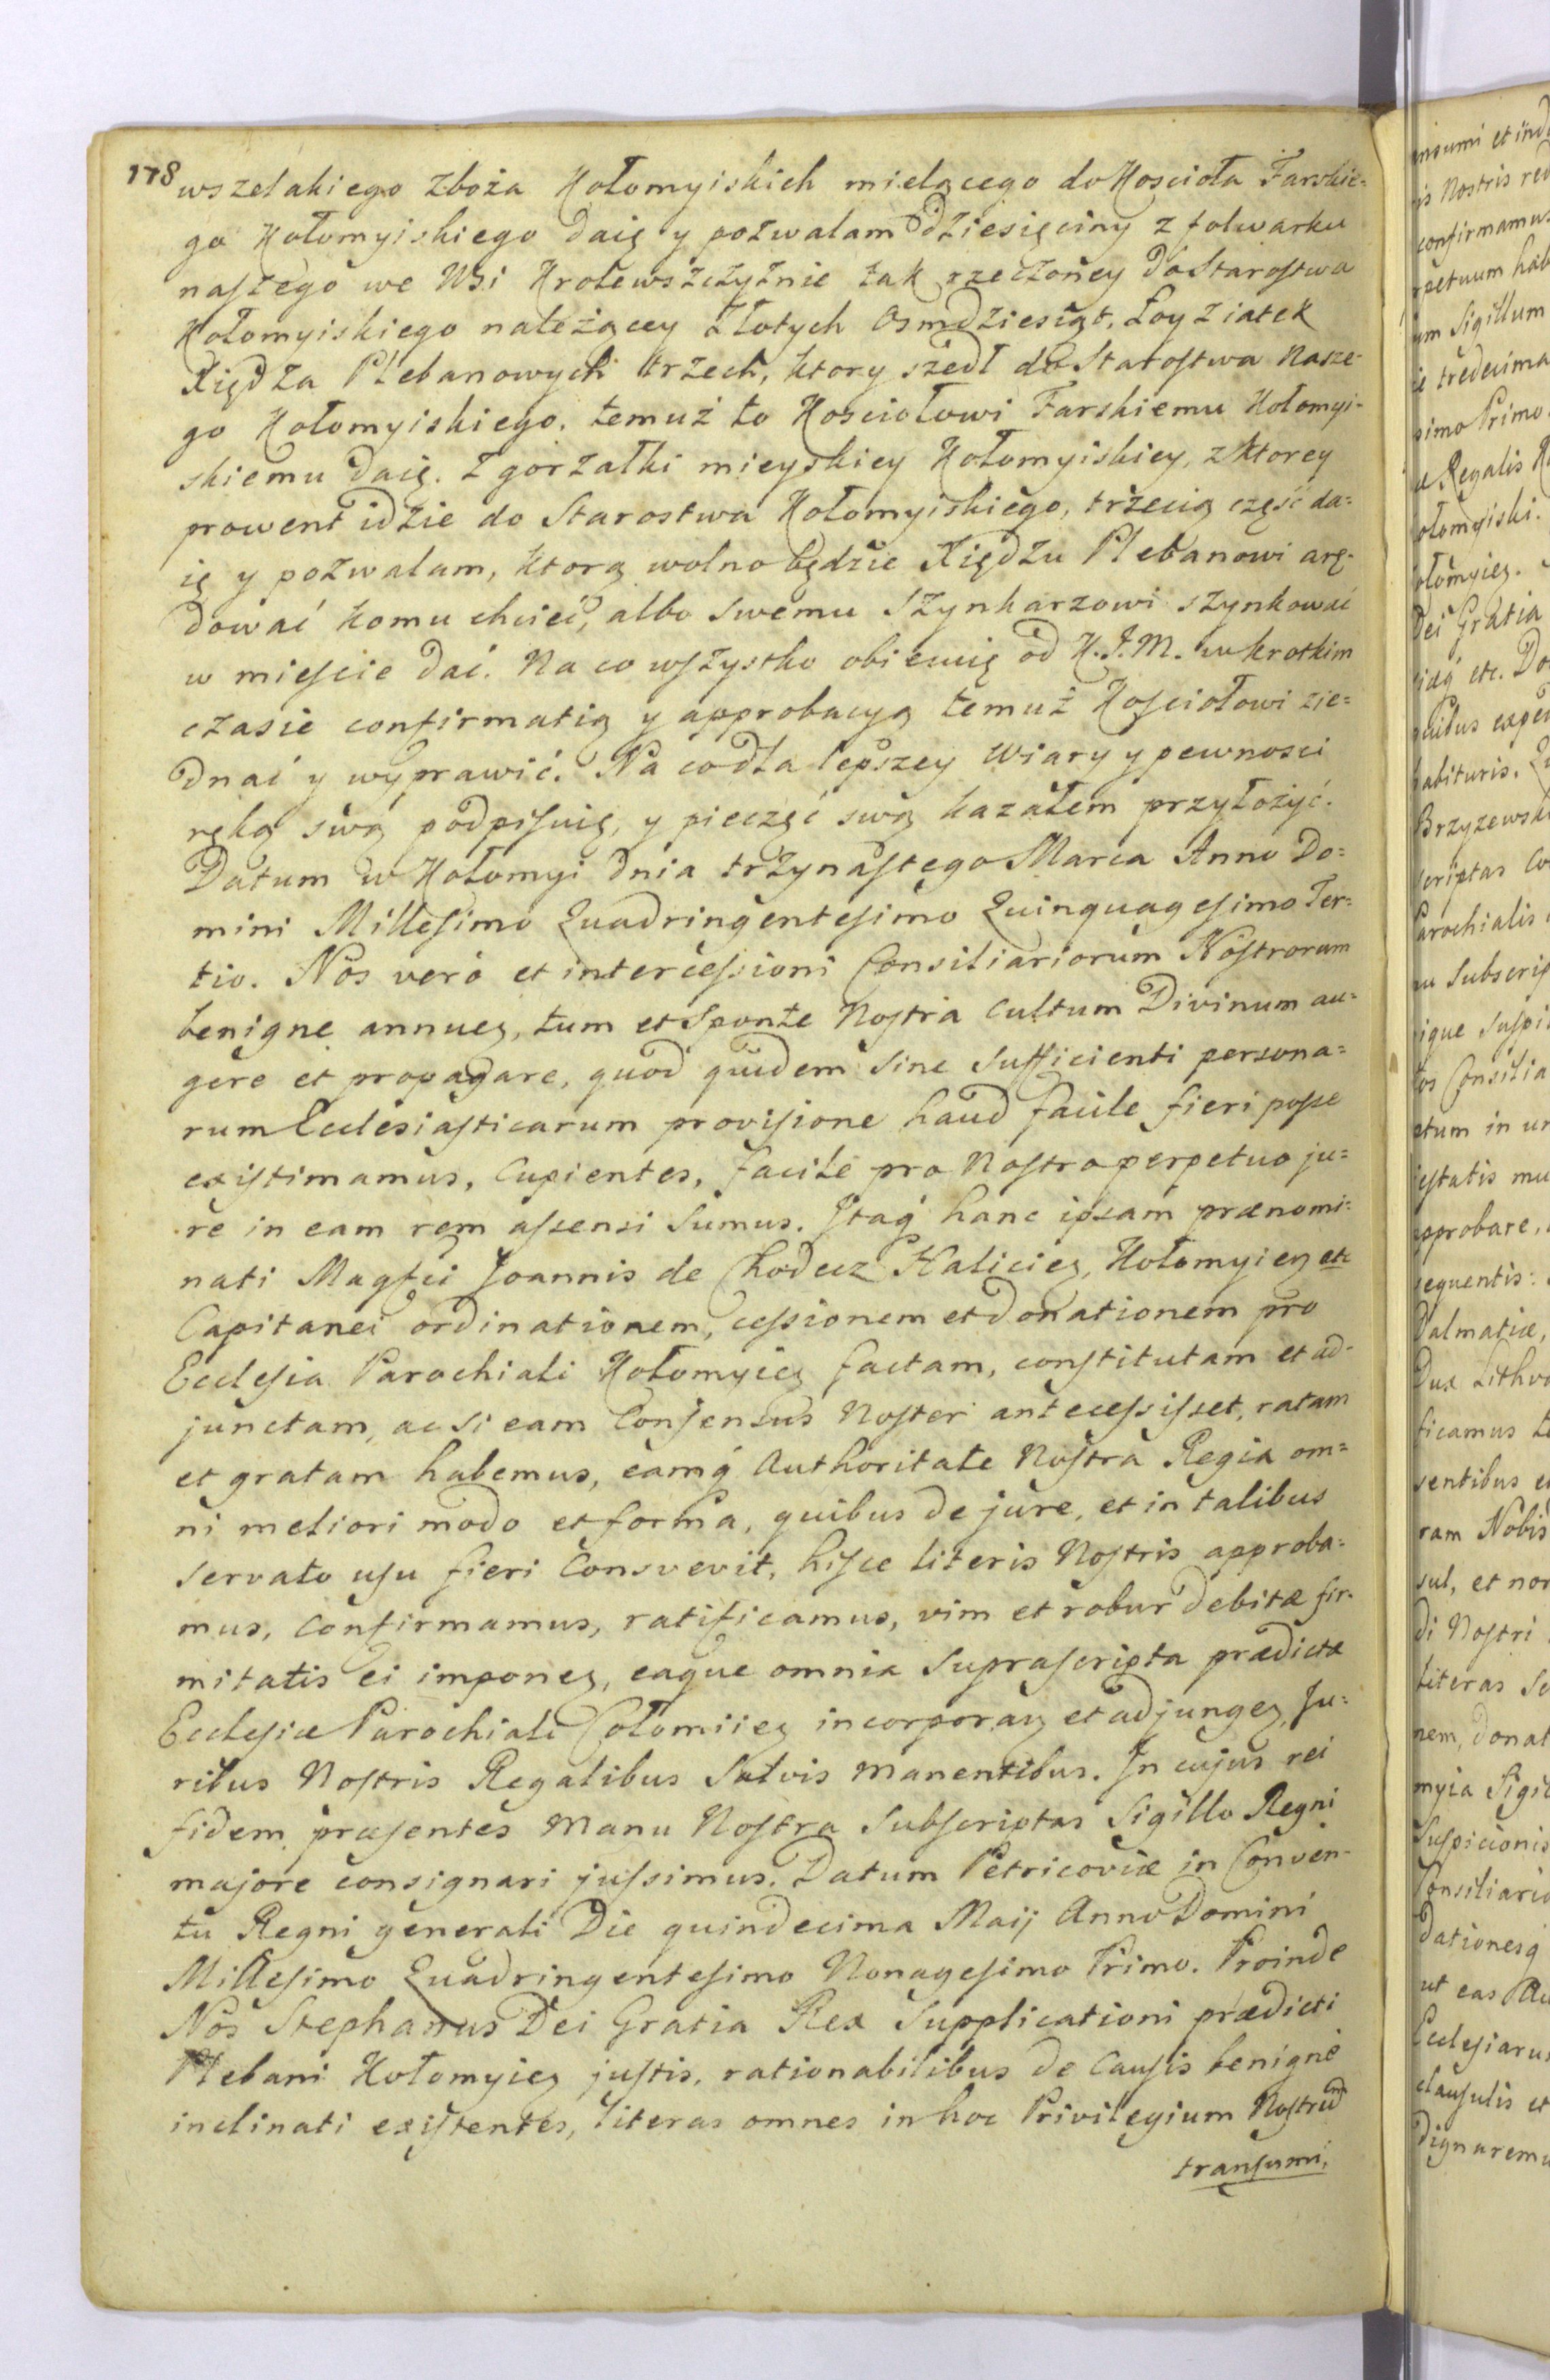 178 wszelakiego zboża Kołomyiskich mielącego do Koscioła Farskie=
go Kołomyiskiego daię y pozwalam dziesięciny z folwarku
naszego we Wsi Krolewszczyznie tak rzeczoney do Starostwa
Kołomyiskiego należącey złotych Osmdziesiąt, Łoy z iatek
Xiędza Plebanowych trzech, ktory szedł do Starostwa Nasze-
go Kołomyiskiego, temuż to Kosciołowi Farskiemu Kołomyi-
skiemu daię. Z gorzałki mieyskiey Kołomyiskiey, z ktorey
prowent idzie do Starostwa Kołomyiskiego, trzecią część da=
ię y pozwalam, ktorą wolno będzie Xiędzu Plebanowi arę-
dować komu chcieć, albo swemu szynkarzowi szynkować
w mieście dać. Na co wszystko obiecuię od K.J.M. w krotkim
czasie confirmatią y approbacyą temuż Kosciołowi zie=
dnać y wyprawić. Na co dla lepszey Wiary y pewnosci
ręką swą podpisuię, y pieczęć swą kazałem przyłożyć.
Datum w Kołomyi dnia trzynastego Marca Anno Do=
mini Millesimo Quadringentesimo Quinquagesimo Ter=
tio. Nos verò et intercessioni Consiliariorum Nostrorum
benigne annueȝ, tum et Sponte Nostra Cultum Divinum au=
gere et propagare, quod quidem sine sufficienti persona=
rum Ecclesiasticarum provisione haud facile fieri posse
existimamus, Cupientes, facile pro Nostro perpetuo ju=
re in eam rem assensi Sumus. Itaq́ hanc ipsam prænomi=
nati Magfci Joannis de Chodecz Halicieȝ, Kołomyieȝ etc
Capitanei ordinationem, cessionem et donationem pro
Ecclesia Parochiali Kołomyieȝ factam, constitutam et ad-
junctam, ac si eam Consensus Noster antecessisset, ratam
et gratam habemus, eamq́ Authoritate Nostra Regia om=
ni meliori modo et forma, quibus de jure, et in talibus
servato usu fieri Consvevit, hisce literis Nostris approba=
mus, Confirmamus, ratificamus, vim et robur debitæ fir-
mitatis ei imponeȝ, eaque omnia Suprascripta prædictæ
Ecclesiæ Parochiali Colomiieȝ incorporaȝ et adjungeȝ, Ju=
ribus Nostris Regalibus Salvis manentibus. In cujus rei
fidem præsentes Manu Nostra Subscriptas Sigillo Regni
majore consignari jussimus. Datum Petricoviæ in Conven-
tu Regni generali Die quindecima Maij Anno Domini
Millesimo Quadringentesimo Nonagesimo Primo. Proinde
Nos Stephanus Dei Gratia Rex Supplicationi prædicti
Plebani Kołomyieȝ justis, rationabilibus de Causis benignè
inclinati existentes, literas omnes in hoc Privilegium Nostrum
transumi,